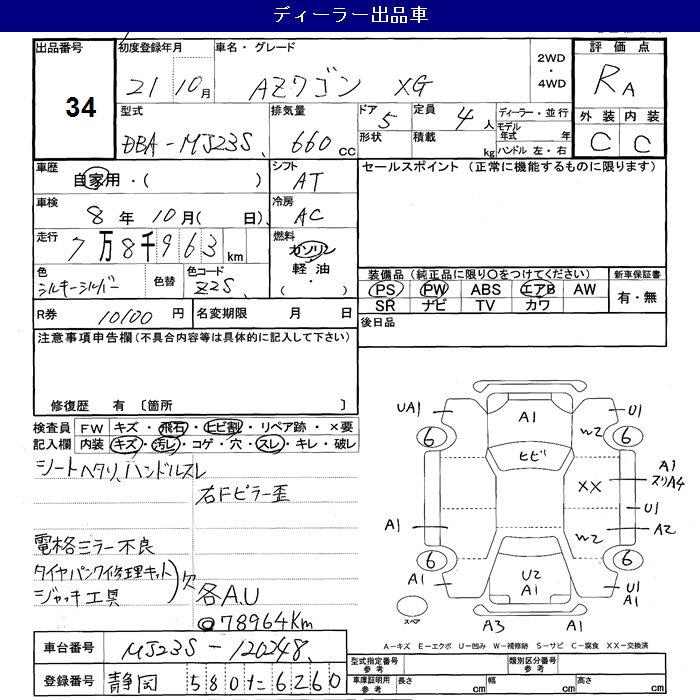 ディーラー出品車
出品番号 初度登録年月 車名・グレード 2WD・4WD 評価点
34 21 10月 AZワゴン XG RA
型式 排気量 ドア 定員 ディーラー・並行 外装 内装
DBA-MJ23S 660cc 5 4人 モデル年式 年 C C
形状 積載 kg ハンドル 左・右
車歴 シフト セールスポイント (正常に機能するものに限ります)
自家用・( ) AT
車検 冷房
8年10月( 日) AC
走行 燃料
7万8千963km ガソリン
色 色替 色コード 軽油 装備品 (純正品に限り○をつけてください) 新車保証書
シルキーシルバー Z2S ( ・ ) PS PW ABS エアB AW 有・無
SR ナビ TV カワ
R券 10100円 名変期限 月 日 後日品
注意事項申告欄 (不具合内容等は具体的に記入して下さい)
修復歴 有 〔箇所
検査員 FW キズ・飛石・ヒビ割・リペア跡・×要
記入欄 内装 キズ・汚レ・コゲ・穴・スレ・キレ・破レ
シートヘタリ、ハンドルスレ
右Fピラー歪
電格ミラー不良
タイヤパンク修理キット
ジャッキ工具 欠
各A.U
@78964Km
UA1 A1 U1
6 W2 6
ヒビ
XX A1
スリA4
U1
A1 W2 A2
6 6
A1 U2 U1
A1 A1
スペア A3 A1
A-キズ E-エクボ U-凹み W-補修跡 S-サビ C-腐食 XX-交換済
車台番号 MJ23S-120248
型式指定番号 参考 類別区分番号 参考
登録番号 静岡 580 た 6260
車庫証明用 参考 長さ cm 幅 cm 高さ cm